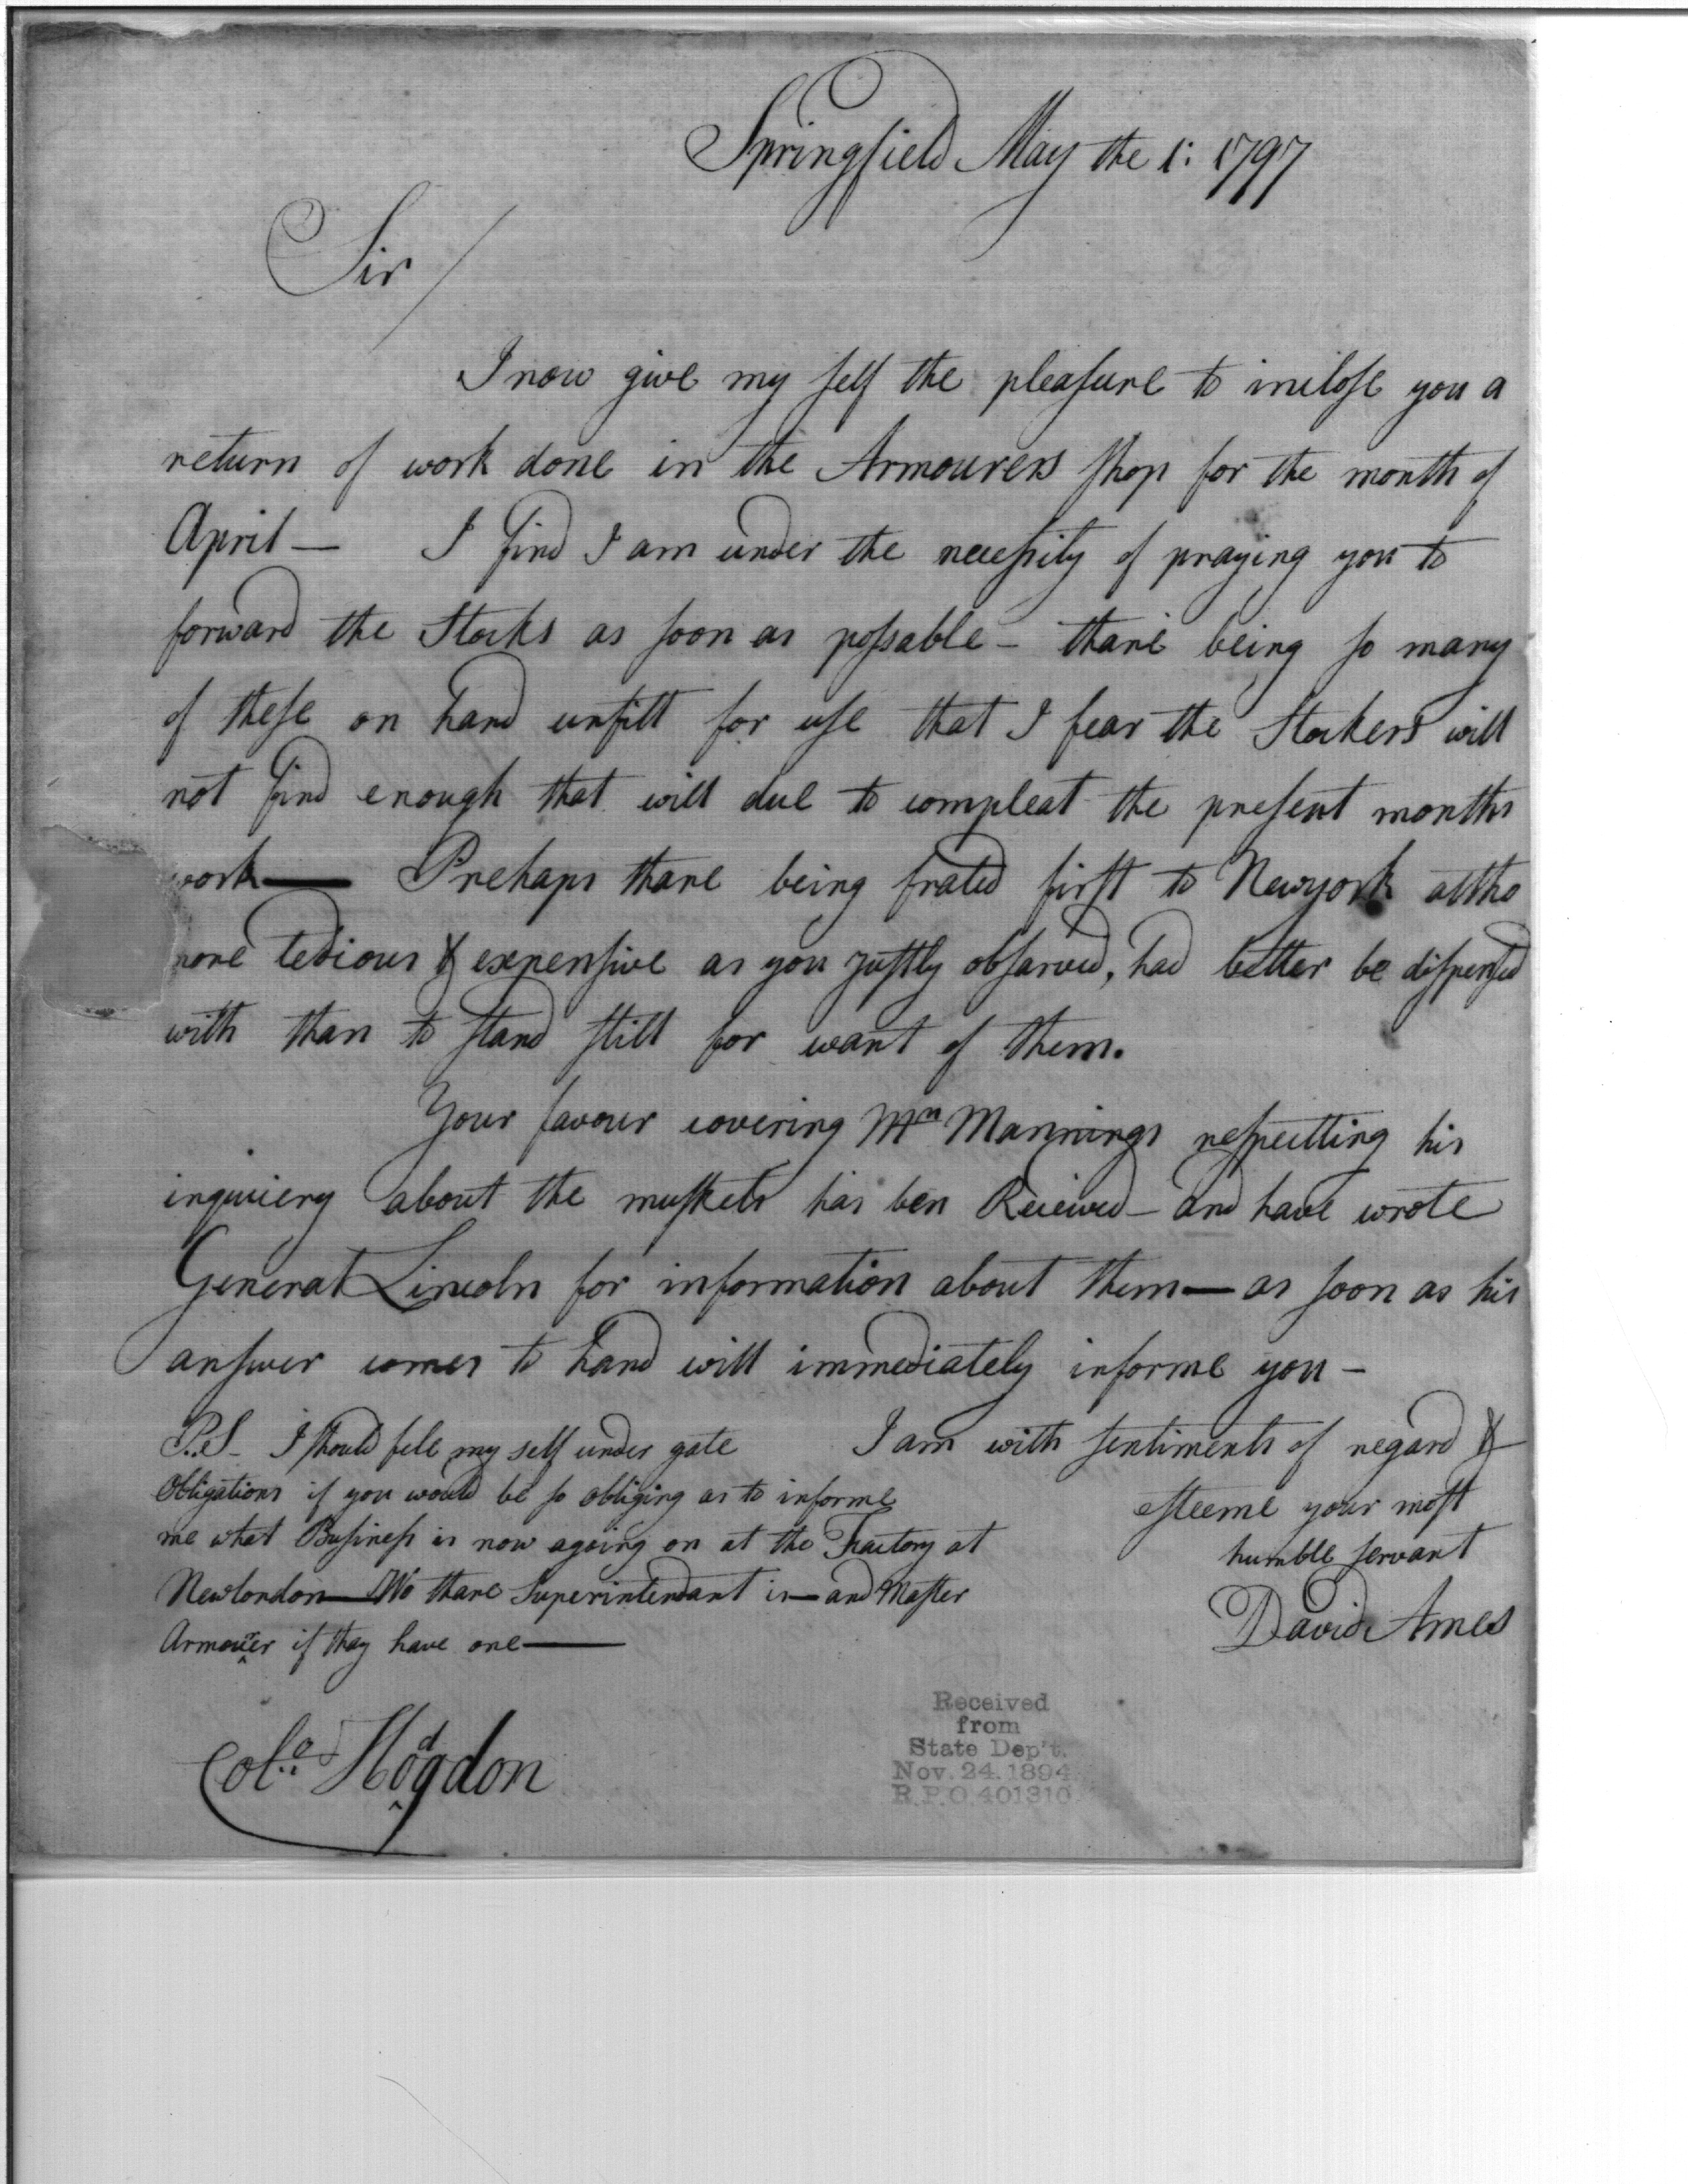 Springfield May the 1: 1797
Sir /
I now give my self the pleasure to inclose you a
return of work done in the Armourers Shop for the month of
April — I find I am under the necessity of praying you to
forward the Stocks as soon as possable – thare being so many
of these on hand unfitt for use that I fear the Stockers will
not find enough that will due to compleat the present months
work — Prehaps thare being frated first to Newyork altho
more tedious & expensive as you justly obsarved, had better be dispensed
with than to stand still for want of them.
Your favour covering Mr Mannings respectting his
inquiery about the muskets has ben Received – and have wrote
General Lincoln for information about them — as soon as his
answer comes to hand will immediately informe you –
I am with sentiments of regard &
esteeme your most
humble servant
David Ames
P.S – I should fele my self under gate
Obligations if you would be so obliging as to informe
me what Business is now agoing on at the Factory at
Newlondon — Who thare Superintendant is — and Master
Armourer if thay have one —
Colo. Hodgdon
Received
from
State Dep't.
Nov. 24. 1894
R.P.O. 401310.